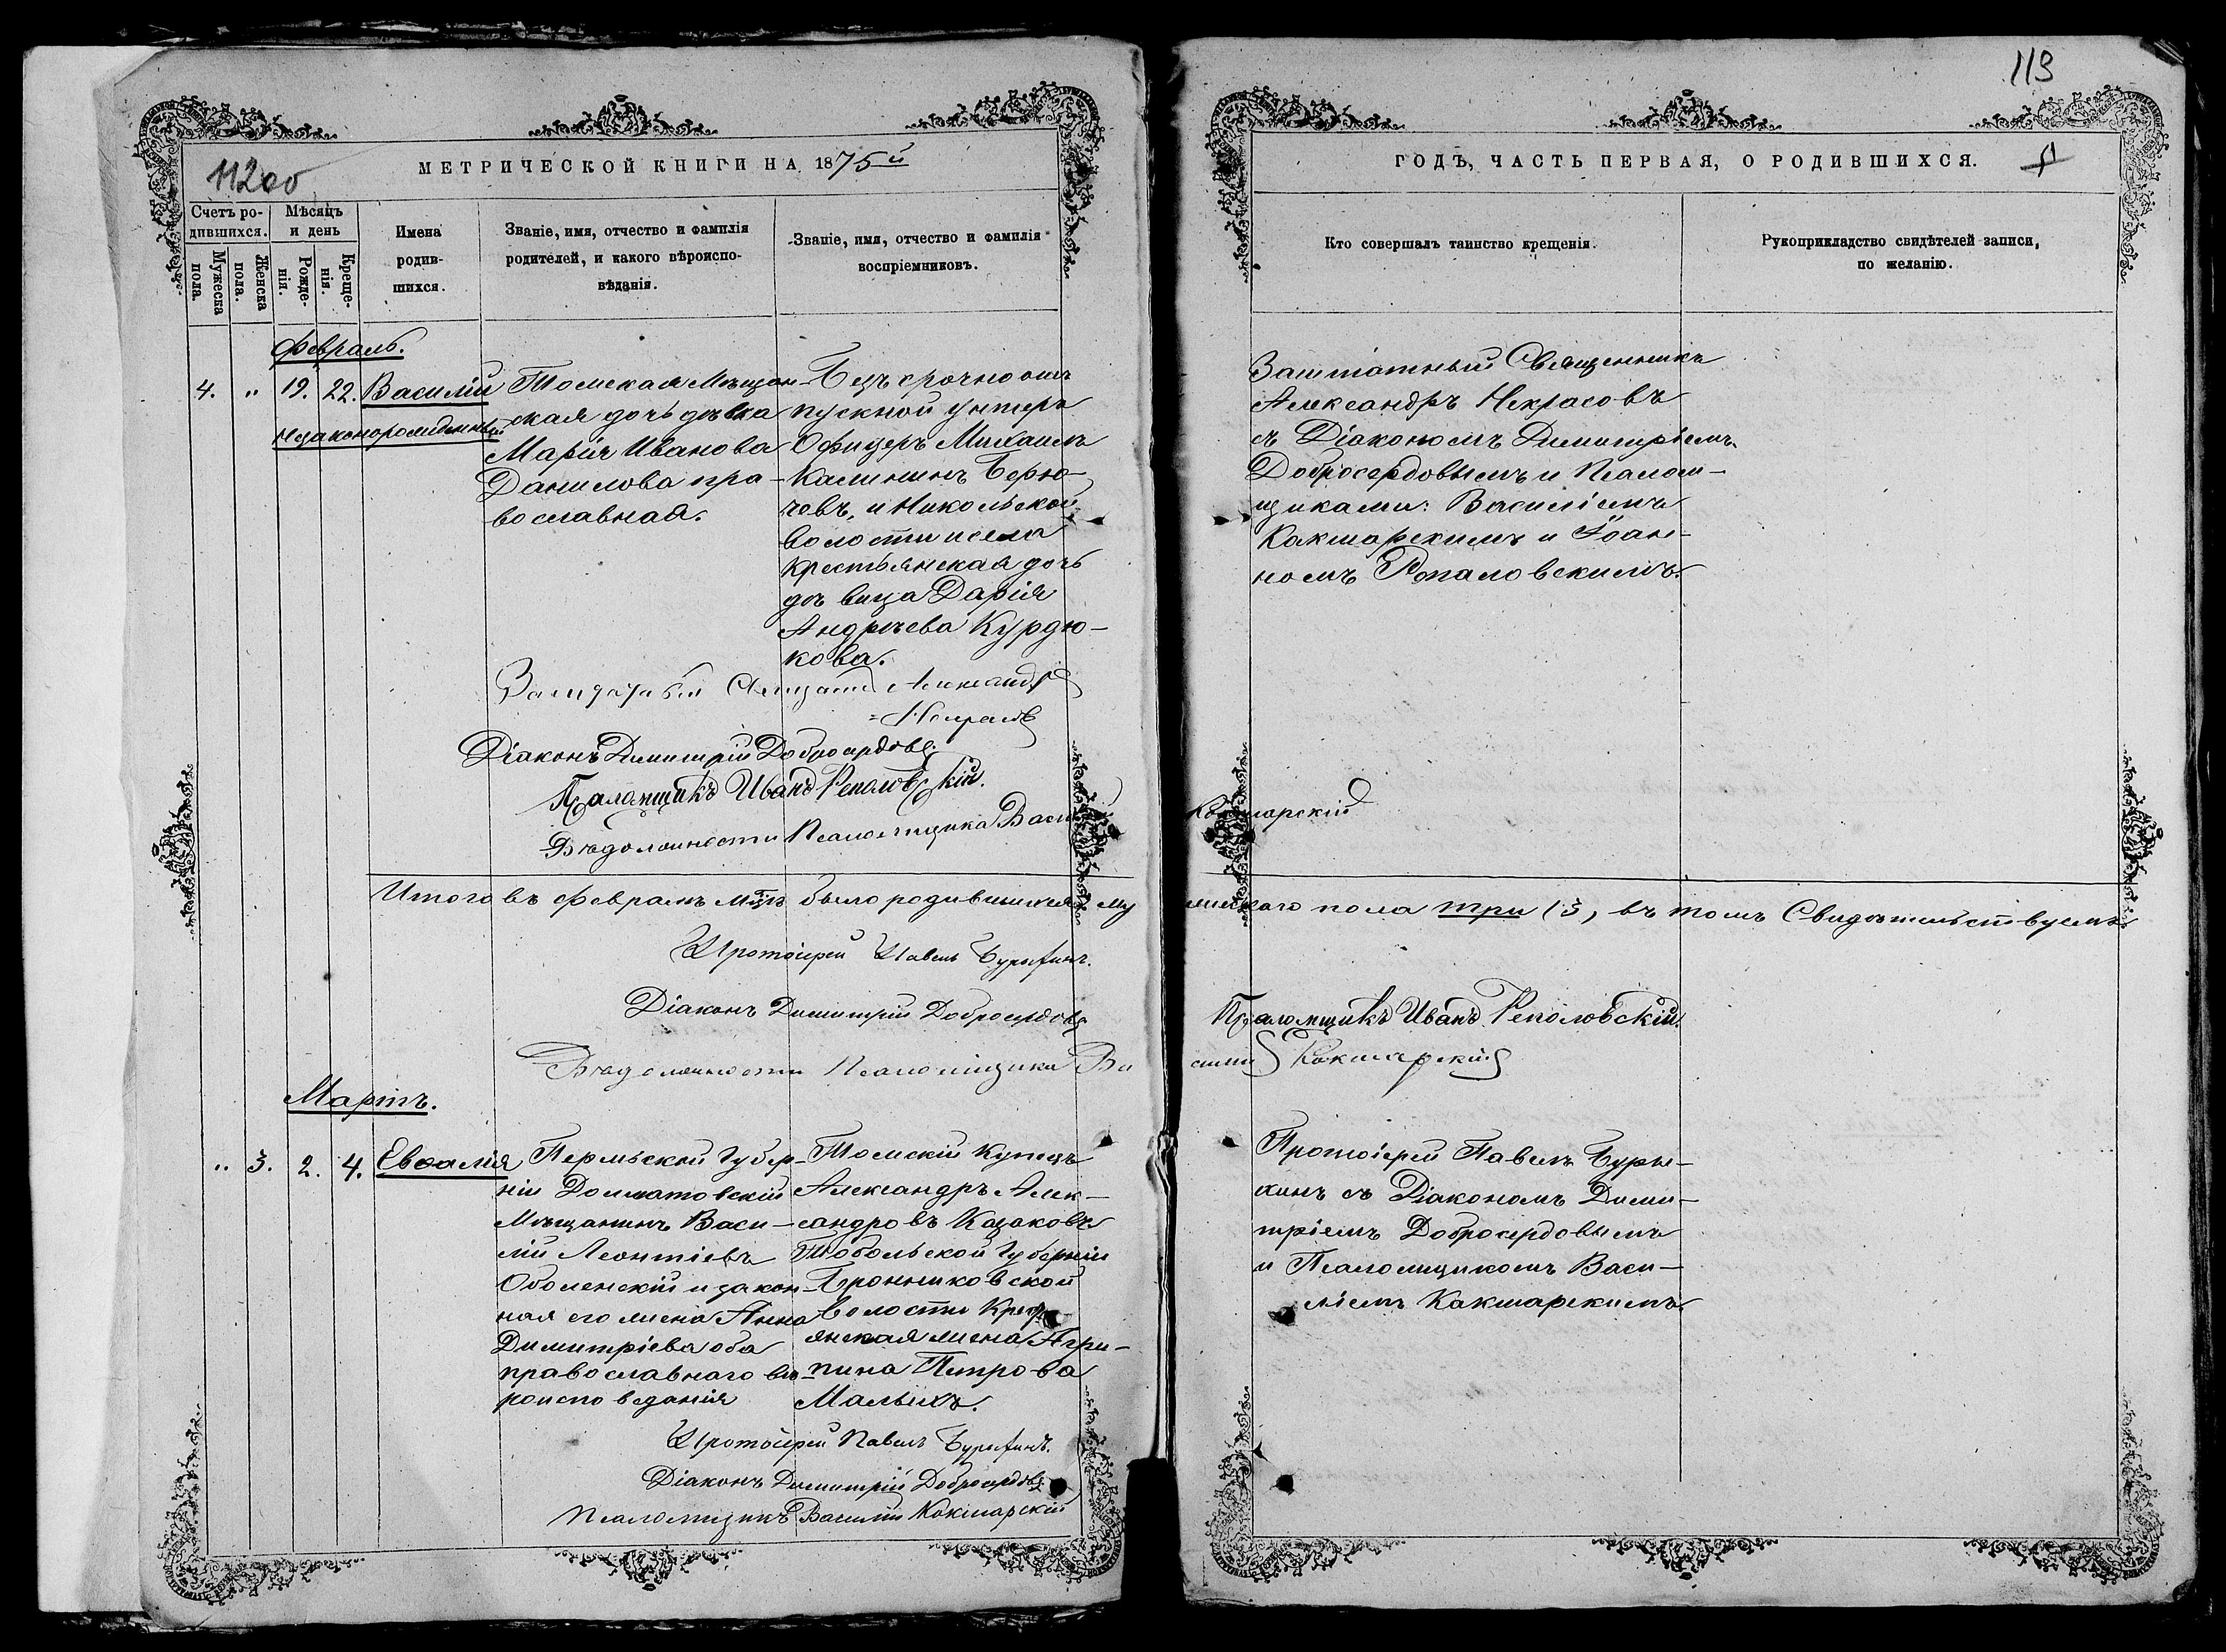 113
МЕТРИЧЕСКОЙ КНИГИ НА 1875й
ГОДЪ, ЧАСТЬ ПЕРВАЯ, О РОДИВШИХСЯ.
Счетъ ро-
дившихся.
Мѣсяцъ
и день
Мужеска
пола.
Женска
пола.
Рожде-
нія.
Креще-
нія.
Имена
родив-
шихся.
Званіе, имя, отчество и фамилія
родителей, и какого вѣроиспо-
вѣданія.
Званіе, имя, отчество и фамилія
воспріемниковъ.
Кто совершалъ таинство крещенія.
Рукоприкладство свидѣтелей записи,
по желанію.
Февраль.
4. " 19. 22. Василій
незаконорожденный
Томская Мѣщан-
ская дочь дѣвка
Марія Иванова
Данилова пра-
вославная.
Безсрочно от-
пускной унтеръ
Офицеръ Михаилъ
Калининъ Берю-
човъ, и Никольской
волости и села
крестьянская дочь
дѣвица Дарія
Андреева Курдю-
кова.
Заштатный Священникъ
Александръ Некрасовъ
съ Діакономъ Димитріемъ
Добросердовымъ и Псалом-
щиками: Василіемъ
Какшарскимъ и Іоан-
номъ Репаловскимъ.
Заштатный Священ Александръ
Некрасовъ
Діаконъ Димитрій Добросердовъ.
Псаломщикъ Иванъ Реполовскій.
Въ должности Псаломщика Василій Кокшарскій
Итого въ февралѣ мцѣ было родившихся мужескаго пола три (3, въ томъ Свидѣтельствуемъ
Протоіерей Павелъ Бурыхинъ.
Діаконъ Димитрій Добросердовъ
Псаломщикъ Иванъ Реполовскій.
Въ должности Псаломщика Василій Кокшарскій
Мартъ.
" 3. 2. 4. Евѳалія
Пермьской Губер-
ніи Долматовскій
Мѣщанинъ Васи-
лій Леонтіевъ
Оболенскій и закон-
ная его жена Анна
Димитріева оба
православнаго вѣ-
роисповеданія
Томскій Купецъ
Александръ Алек-
сандровъ Казаковъ
Тобольской Губерніи
Бронниковской
волости Крест
янская жена Агри-
пина Петрова
Малыхъ.
Протоіерей Павелъ Буры-
хинъ съ Діакономъ Дими-
тріемъ Добросердовымъ
и Псаломщикомъ Васи-
ліемъ Какшарскимъ
Протоіерей Павелъ Бурыхинъ.
Діаконъ Димитрій Добросердовъ
Псаломщикъ Василій Кокшарскій